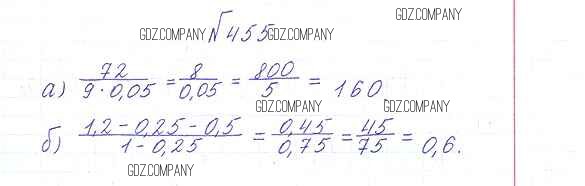 GDZ.COMPANY № 455 GDZ.COMPANY
а) 72 / (9 · 0,05) = 8 / 0,05 = 800 / 5 = 160
GDZ.COMPANY GDZ.COMPANY
б) (1,2 - 0,25 - 0,5) / (1 - 0,25) = 0,45 / 0,75 = 45 / 75 = 0,6.
GDZ.COMPANY